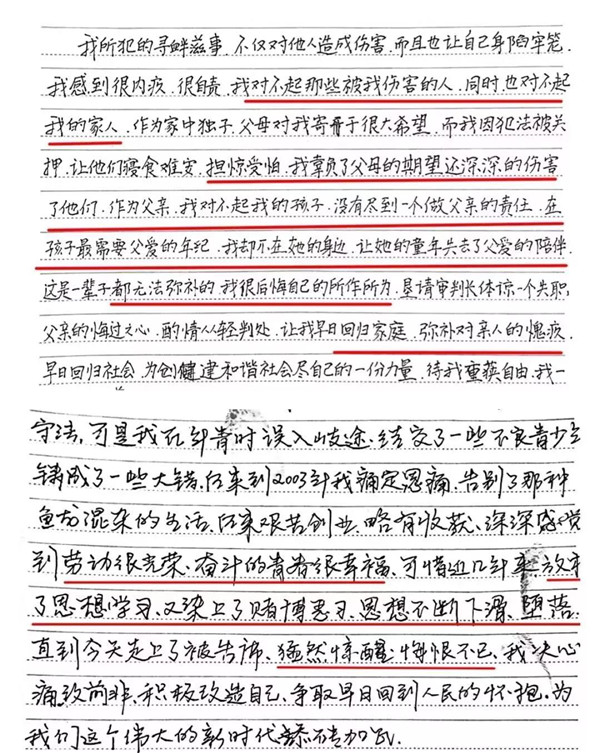 我所犯的寻衅滋事、不仅对他人造成伤害、而且也让自己身陷牢笼.
我感到很内疚、很自责、我对不起那些被我伤害的人、同时、也对不起
我的家人、作为家中独子、父母对我寄予很大希望、而我因犯法被关
押、让他们寝食难安、担惊受怕、我辜负了父母的期望还深深的伤害
了他们、作为父亲、我对不起我的孩子、没有尽到一个做父亲的责任、在
孩子最需要父爱的年纪、我却不在她的身边、让她的童年失去了父爱的陪伴.
这是一辈子都无法弥补的、我很后悔自己的所作所为、恳请审判长体谅一个失职
父亲的悔过之心、酌情从轻判处、让我早日回归家庭、弥补对亲人的愧疚.
早日回归社会、为创健建和谐社会尽自己的一份力量、待我重获自由、我一
守法、可是我在年青时误入岐途、结交了一些不良青少年
铸成了一些大错、后来到2003年我痛定思痛、告别了那种
鱼龙混杂的生活、后来艰苦创业、略有收获、深深感觉
到劳动很光荣、奋斗的青春很幸福、可惜近几年来放弃
了思想学习、又染上了赌博恶习、思想不断下滑、堕落、
直到今天走上了被告席、猛然惊醒、悔恨不已、我决心
痛改前非、积极改造自己、争取早日回到人民的怀抱、为
我们这个伟大的新时代添砖加瓦.